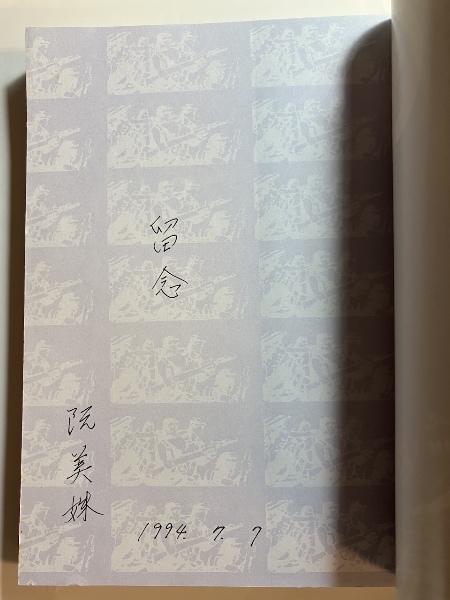 留念
阮美姝
1994. 7. 7